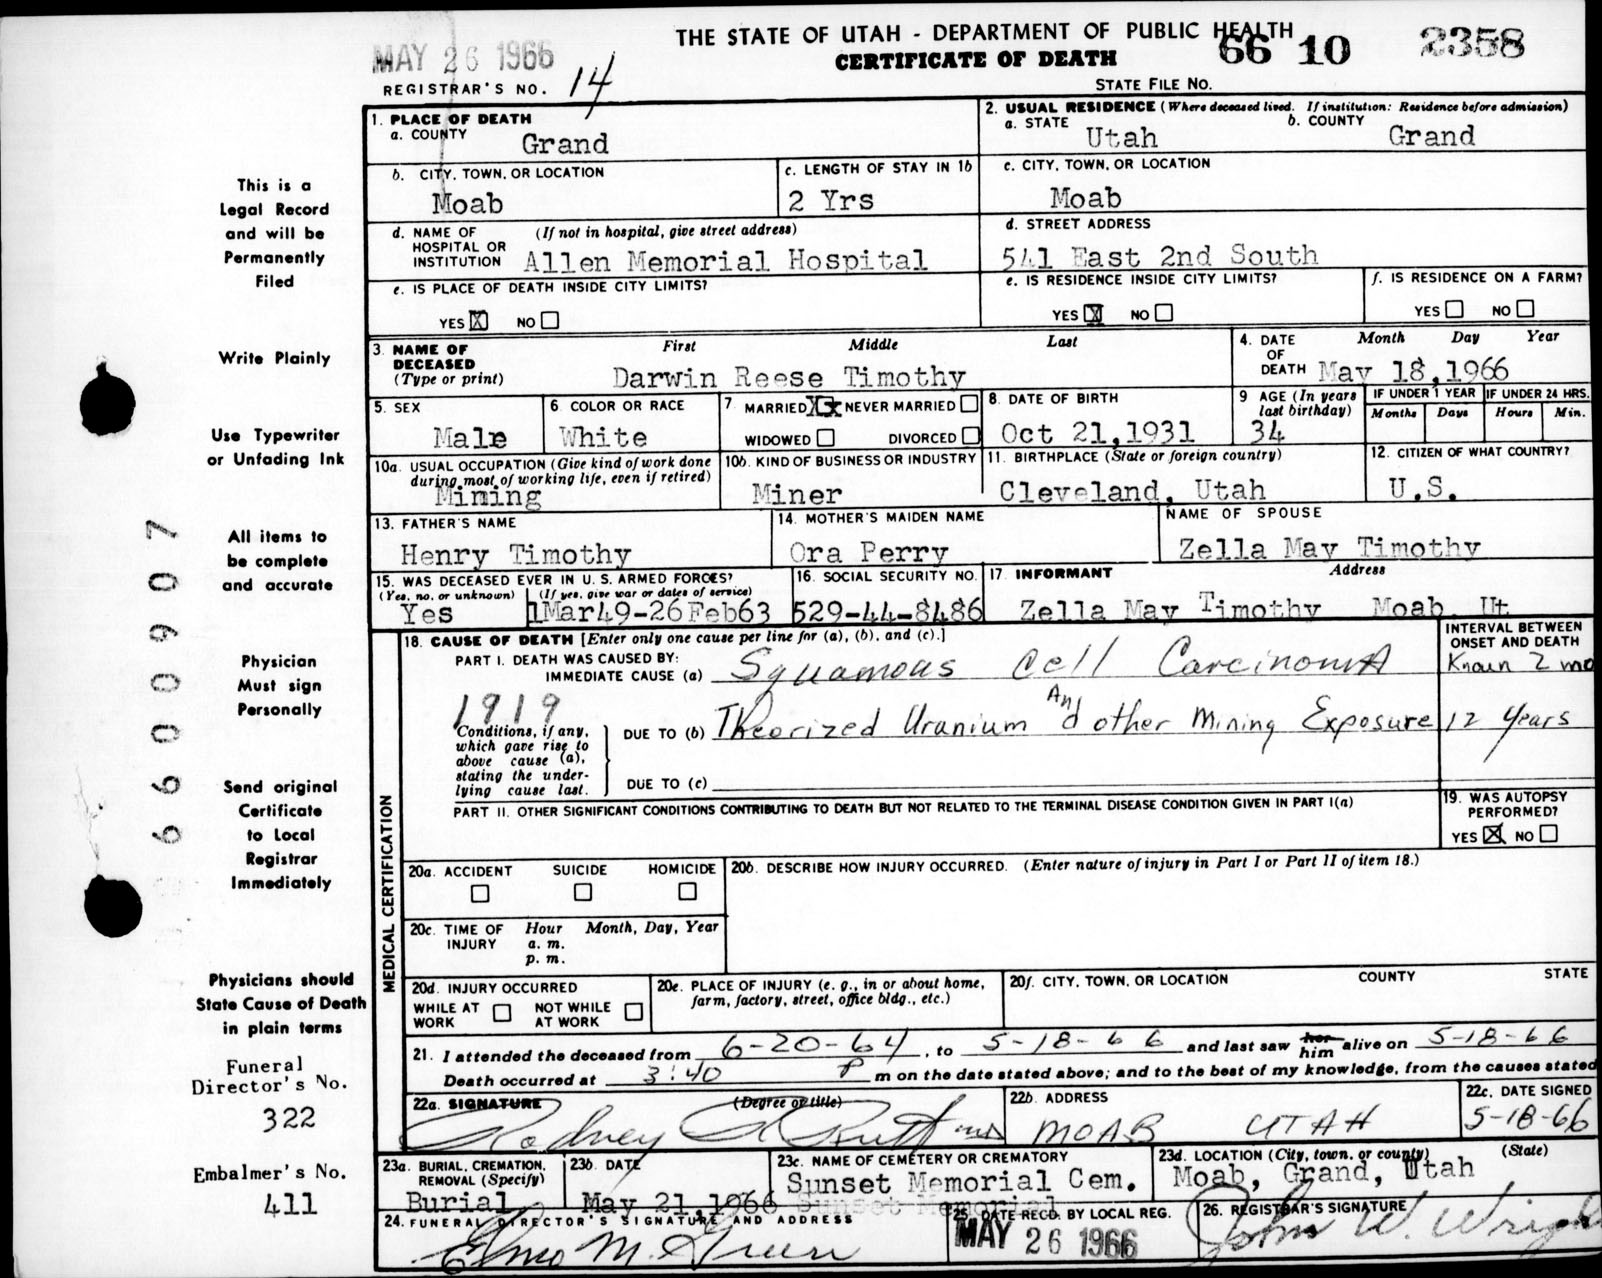 THE STATE OF UTAH - DEPARTMENT OF PUBLIC HEALTH
CERTIFICATE OF DEATH
66 10 2358
STATE FILE NO.
MAY 26 1966
REGISTRAR'S NO. 14
This is a
Legal Record
and will be
Permanently
Filed
Write Plainly
Use Typewriter
or Unfading Ink
All items to
be complete
and accurate
Physician
Must sign
Personally
Send original
Certificate
to Local
Registrar
Immediately
Physicians should
State Cause of Death
in plain terms
Funeral
Director's No.
322
Embalmer's No.
411
6600907
1. PLACE OF DEATH
a. COUNTY
Grand
2. USUAL RESIDENCE (Where deceased lived. If institution: Residence before admission)
a. STATE Utah b. COUNTY Grand
b. CITY, TOWN, OR LOCATION
Moab
c. LENGTH OF STAY IN 1b
2 Yrs
c. CITY, TOWN, OR LOCATION
Moab
d. NAME OF HOSPITAL OR INSTITUTION (If not in hospital, give street address)
Allen Memorial Hospital
d. STREET ADDRESS
541 East 2nd South
e. IS PLACE OF DEATH INSIDE CITY LIMITS?
YES X NO
e. IS RESIDENCE INSIDE CITY LIMITS?
YES X NO
f. IS RESIDENCE ON A FARM?
YES NO
3. NAME OF DECEASED (Type or print)
First Middle Last
Darwin Reese Timothy
4. DATE OF DEATH Month Day Year
May 18,1966
5. SEX
Male
6. COLOR OR RACE
White
7 MARRIED X NEVER MARRIED
WIDOWED DIVORCED
8. DATE OF BIRTH
Oct 21,1931
9 AGE (In years last birthday)
34
IF UNDER 1 YEAR IF UNDER 24 HRS.
Months Days Hours Min.
10a. USUAL OCCUPATION (Give kind of work done during most of working life, even if retired)
Mining
10b. KIND OF BUSINESS OR INDUSTRY
Miner
11. BIRTHPLACE (State or foreign country)
Cleveland, Utah
12. CITIZEN OF WHAT COUNTRY?
U.S.
13. FATHER'S NAME
Henry Timothy
14. MOTHER'S MAIDEN NAME
Ora Perry
NAME OF SPOUSE
Zella May Timothy
15. WAS DECEASED EVER IN U.S. ARMED FORCES?
(Yes, no, or unknown) (If yes, give war or dates of service)
Yes 1Mar49-26Feb63
16. SOCIAL SECURITY NO.
529-44-8486
17. INFORMANT Address
Zella May Timothy Moab, Ut
MEDICAL CERTIFICATION
18. CAUSE OF DEATH [Enter only one cause per line for (a), (b), and (c).]
INTERVAL BETWEEN ONSET AND DEATH
PART I. DEATH WAS CAUSED BY:
IMMEDIATE CAUSE (a) Squamous Cell Carcinoma
Known 2 mo
1919
Conditions, if any, which gave rise to above cause (a), stating the underlying cause last.
DUE TO (b) Theorized Uranium And other Mining Exposure 12 Years
DUE TO (c)
PART II. OTHER SIGNIFICANT CONDITIONS CONTRIBUTING TO DEATH BUT NOT RELATED TO THE TERMINAL DISEASE CONDITION GIVEN IN PART I(a)
19. WAS AUTOPSY PERFORMED?
YES X NO
20a. ACCIDENT SUICIDE HOMICIDE
20b. DESCRIBE HOW INJURY OCCURRED. (Enter nature of injury in Part I or Part II of item 18.)
20c. TIME OF INJURY Hour Month, Day, Year
a. m.
p. m.
20d. INJURY OCCURRED
WHILE AT WORK NOT WHILE AT WORK
20e. PLACE OF INJURY (e. g., in or about home, farm, factory, street, office bldg., etc.)
20f. CITY, TOWN, OR LOCATION COUNTY STATE
21. I attended the deceased from 6-20-64, to 5-18-66 and last saw her him alive on 5-18-66
Death occurred at 3:40 P m on the date stated above; and to the best of my knowledge, from the causes stated
22a. SIGNATURE (Degree or title)
Rodney
22b. ADDRESS
MOAB UTAH
22c. DATE SIGNED
5-18-66
23a. BURIAL, CREMATION, REMOVAL (Specify)
Burial
23b. DATE
May 21,1966
23c. NAME OF CEMETERY OR CREMATORY
Sunset Memorial Cem.
Sunset Memorial
23d. LOCATION (City, town, or county) (State)
Moab, Grand, Utah
24. FUNERAL DIRECTOR'S SIGNATURE AND ADDRESS
Elmo M. Green
25. DATE RECD. BY LOCAL REG.
MAY 26 1966
26. REGISTRAR'S SIGNATURE
John W. Wright